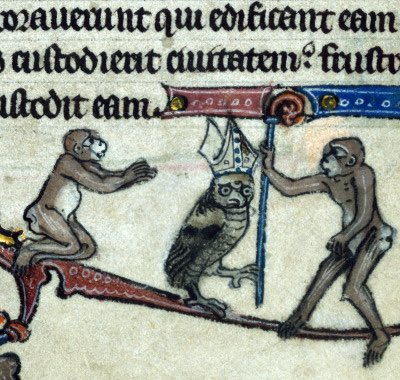 corauerunt qui edificant eam
custodierit ciuitatem: frustr
ustodit eam.